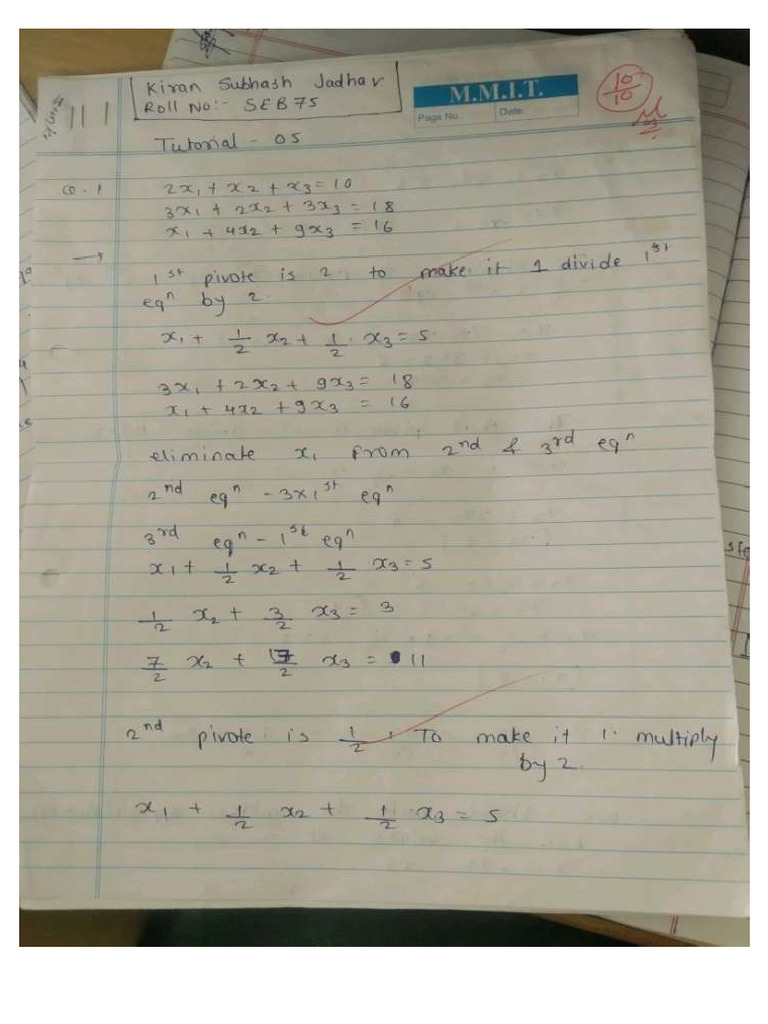 Kiran Subhash Jadhav
Roll No:- SEB75
M.M.I.T.
Page No.
Date
10/10
Tutorial - 05
Q.1
2x₁ + x₂ + x₃ = 10
3x₁ + 2x₂ + 3x₃ = 18
x₁ + 4x₂ + 9x₃ = 16
→ 1st pivote is 2. to make it 1 divide 1st
eqⁿ by 2.
x₁ + 1/2 x₂ + 1/2 x₃ = 5
3x₁ + 2x₂ + 9x₃ = 18
x₁ + 4x₂ + 9x₃ = 16
eliminate x₁ from 2nd & 3rd eqⁿ
2nd eqⁿ - 3x1st eqⁿ
3rd eqⁿ - 1st eqⁿ
x₁ + 1/2 x₂ + 1/2 x₃ = 5
1/2 x₂ + 3/2 x₃ = 3
7/2 x₂ + 17/2 x₃ = 11
2nd pivote is 1/2. To make it 1. multiply
by 2.
x₁ + 1/2 x₂ + 1/2 x₃ = 5